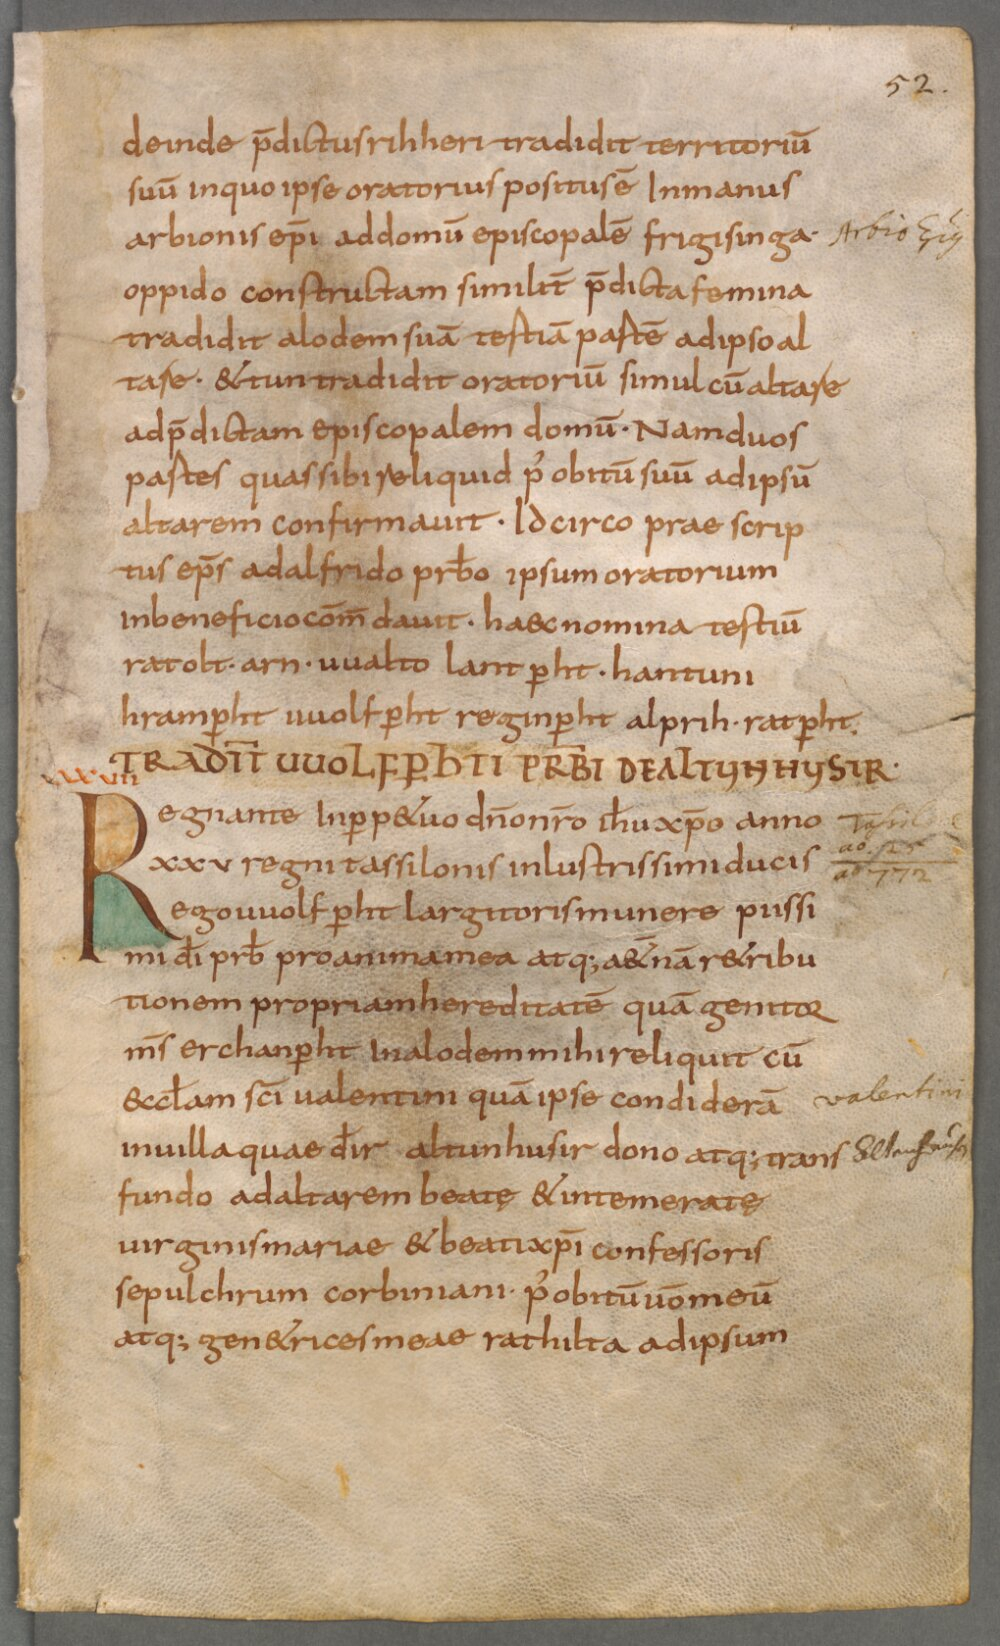 52.
deinde p̄dictus rihheri tradidit territoriū
suū inquo ipse oratorius positus ē Inmanus
arbionis ep̄i addomū episcopalē frigisinga·
Arbio
oppido constructam similit̄ p̄dicta femina
tradidit alodem suā tertiā partē adipso al
tare· &tun tradidit oratoriū simul cū altare
adp̄dictam episcopalem domū· Nam duos
partes quas sibi reliquid p̄ obitū suū adipsū
altarem confirmavit· Idcirco prae scrip
tus ep̄s adalfrido prb̄o ipsum oratorium
inbeneficio com̄davit· haec nomina testiū
ratolt· arn· uualto lantꝑht· hantuni
hramꝑht uuolfꝑht reginꝑht alprih· ratꝑht·
TRADIT̄ UUOLFꝑhTI PRB̄I DEALTUNHUSIR·
xxvii
Regnante Inꝑp&uo dn̄o nr̄o ih̄u xp̄o anno
xxv regni tassilonis inlustrissimi ducis
ao 772
ego uuolfꝑht largitoris munere piissi
mi dī prb̄ pro anima mea atq; a&n̄ā r&ribu
tionem propriam hereditatē quā genitor
ms̄ erchanꝑht Inalodem mihi reliquit cū
&ccl̄am sc̄i ualentini quā ipse condiderā
valentini
inuilla quae dr̄ altunhusir dono atq; trans
fundo adaltarem beatę &intemeratę
uirginis mariae &beati xp̄i confessoris
sepulchrum corbiniani· p̄ obitū uō meū
atq; gen&rices meae rathilta adipsum